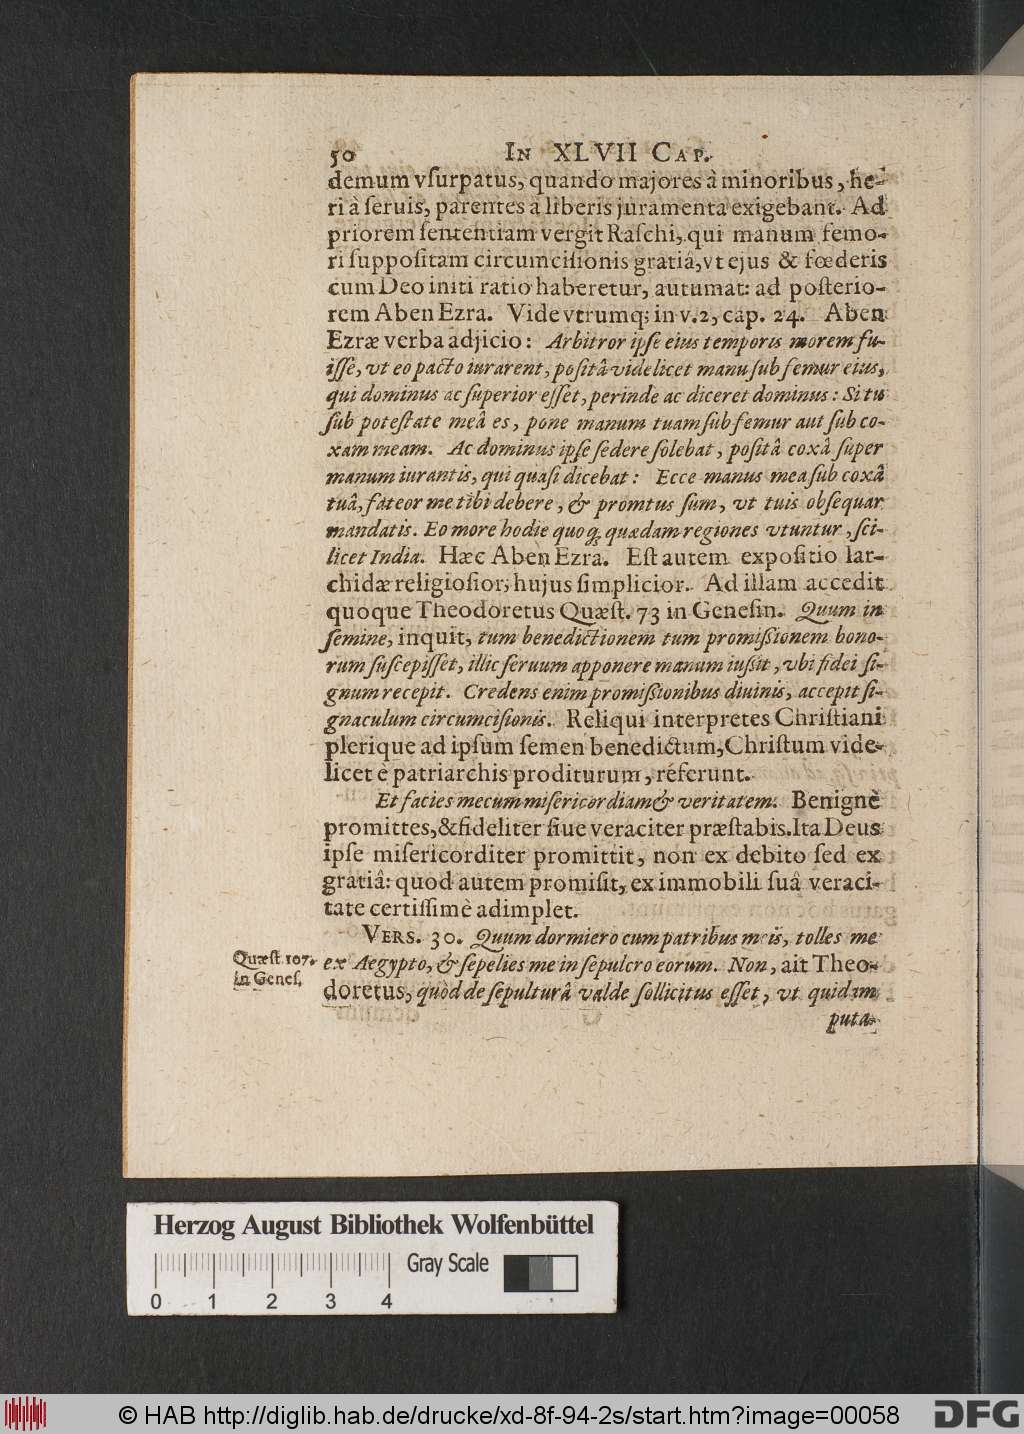 50 In XLVII Cap.
demum vſurpatus, quando majores à minoribus, he-
ri à ſeruis, parentes à liberis juramenta exigebant. Ad
priorem ſententiam vergit Raſchi, qui manum femo-
ri ſuppoſitam circumciſionis gratiâ, vt ejus & fœderis
cum Deo initi ratio haberetur, autumat: ad poſterio-
rem Aben Ezra. Vide vtrumq; in v. 2, cap. 24. Aben
Ezræ verba adjicio: Arbitror ipſe eius temporis morem fu-
iſſe, vt eo pacto iurarent, poſitâ videlicet manu ſub femur eius,
qui dominus ac ſuperior eſſet, perinde ac diceret dominus: Si tu
ſub poteſtate meâ es, pone manum tuam ſub femur aut ſub co-
xam meam. Ac dominus ipſe ſedere ſolebat, poſitâ coxâ ſuper
manum iurantis, qui quaſi dicebat: Ecce manus mea ſub coxâ
tuâ, fateor me tibi debere, & promtus ſum, vt tuis obſequar
mandatis. Eo more hodie quoq; quædam regiones vtuntur, ſci-
licet India. Hæc Aben Ezra. Eſt autem expoſitio Iar-
chidæ religioſior, hujus ſimplicior. Ad illam accedit
quoque Theodoretus Quæſt. 73 in Geneſin. Quum in
ſemine, inquit, tum benedictionem tum promißionem bono-
rum ſuſcepiſſet, illic ſeruum apponere manum iußit, vbi fidei ſi-
gnum recepit. Credens enim promißionibus diuinis, accepit ſi-
gnaculum circumciſionis. Reliqui interpretes Chriſtiani
plerique ad ipſum ſemen benedictum, Chriſtum vide-
licet è patriarchis proditurum, réferunt.
Et facies mecum miſericordiam & veritatem. Benignè
promittes, & fideliter ſiue veraciter præſtabis. Ita Deus
ipſe miſericorditer promittit, non ex debito ſed ex
gratiâ: quod autem promiſit, ex immobili ſuâ veraci-
tate certiſſimè adimplet.
Vers. 30. Quum dormiero cum patribus meis, tolles me
Quæſt. 107.
in Geneſ.
ex Aegypto, & ſepelies me in ſepulcro eorum. Non, ait Theo-
doretus, quòd de ſepulturâ valde ſollicitus eſſet, vt quidam
puta-
Herzog August Bibliothek Wolfenbüttel
Gray Scale
0 1 2 3 4
© HAB http://diglib.hab.de/drucke/xd-8f-94-2s/start.htm?image=00058
DFG